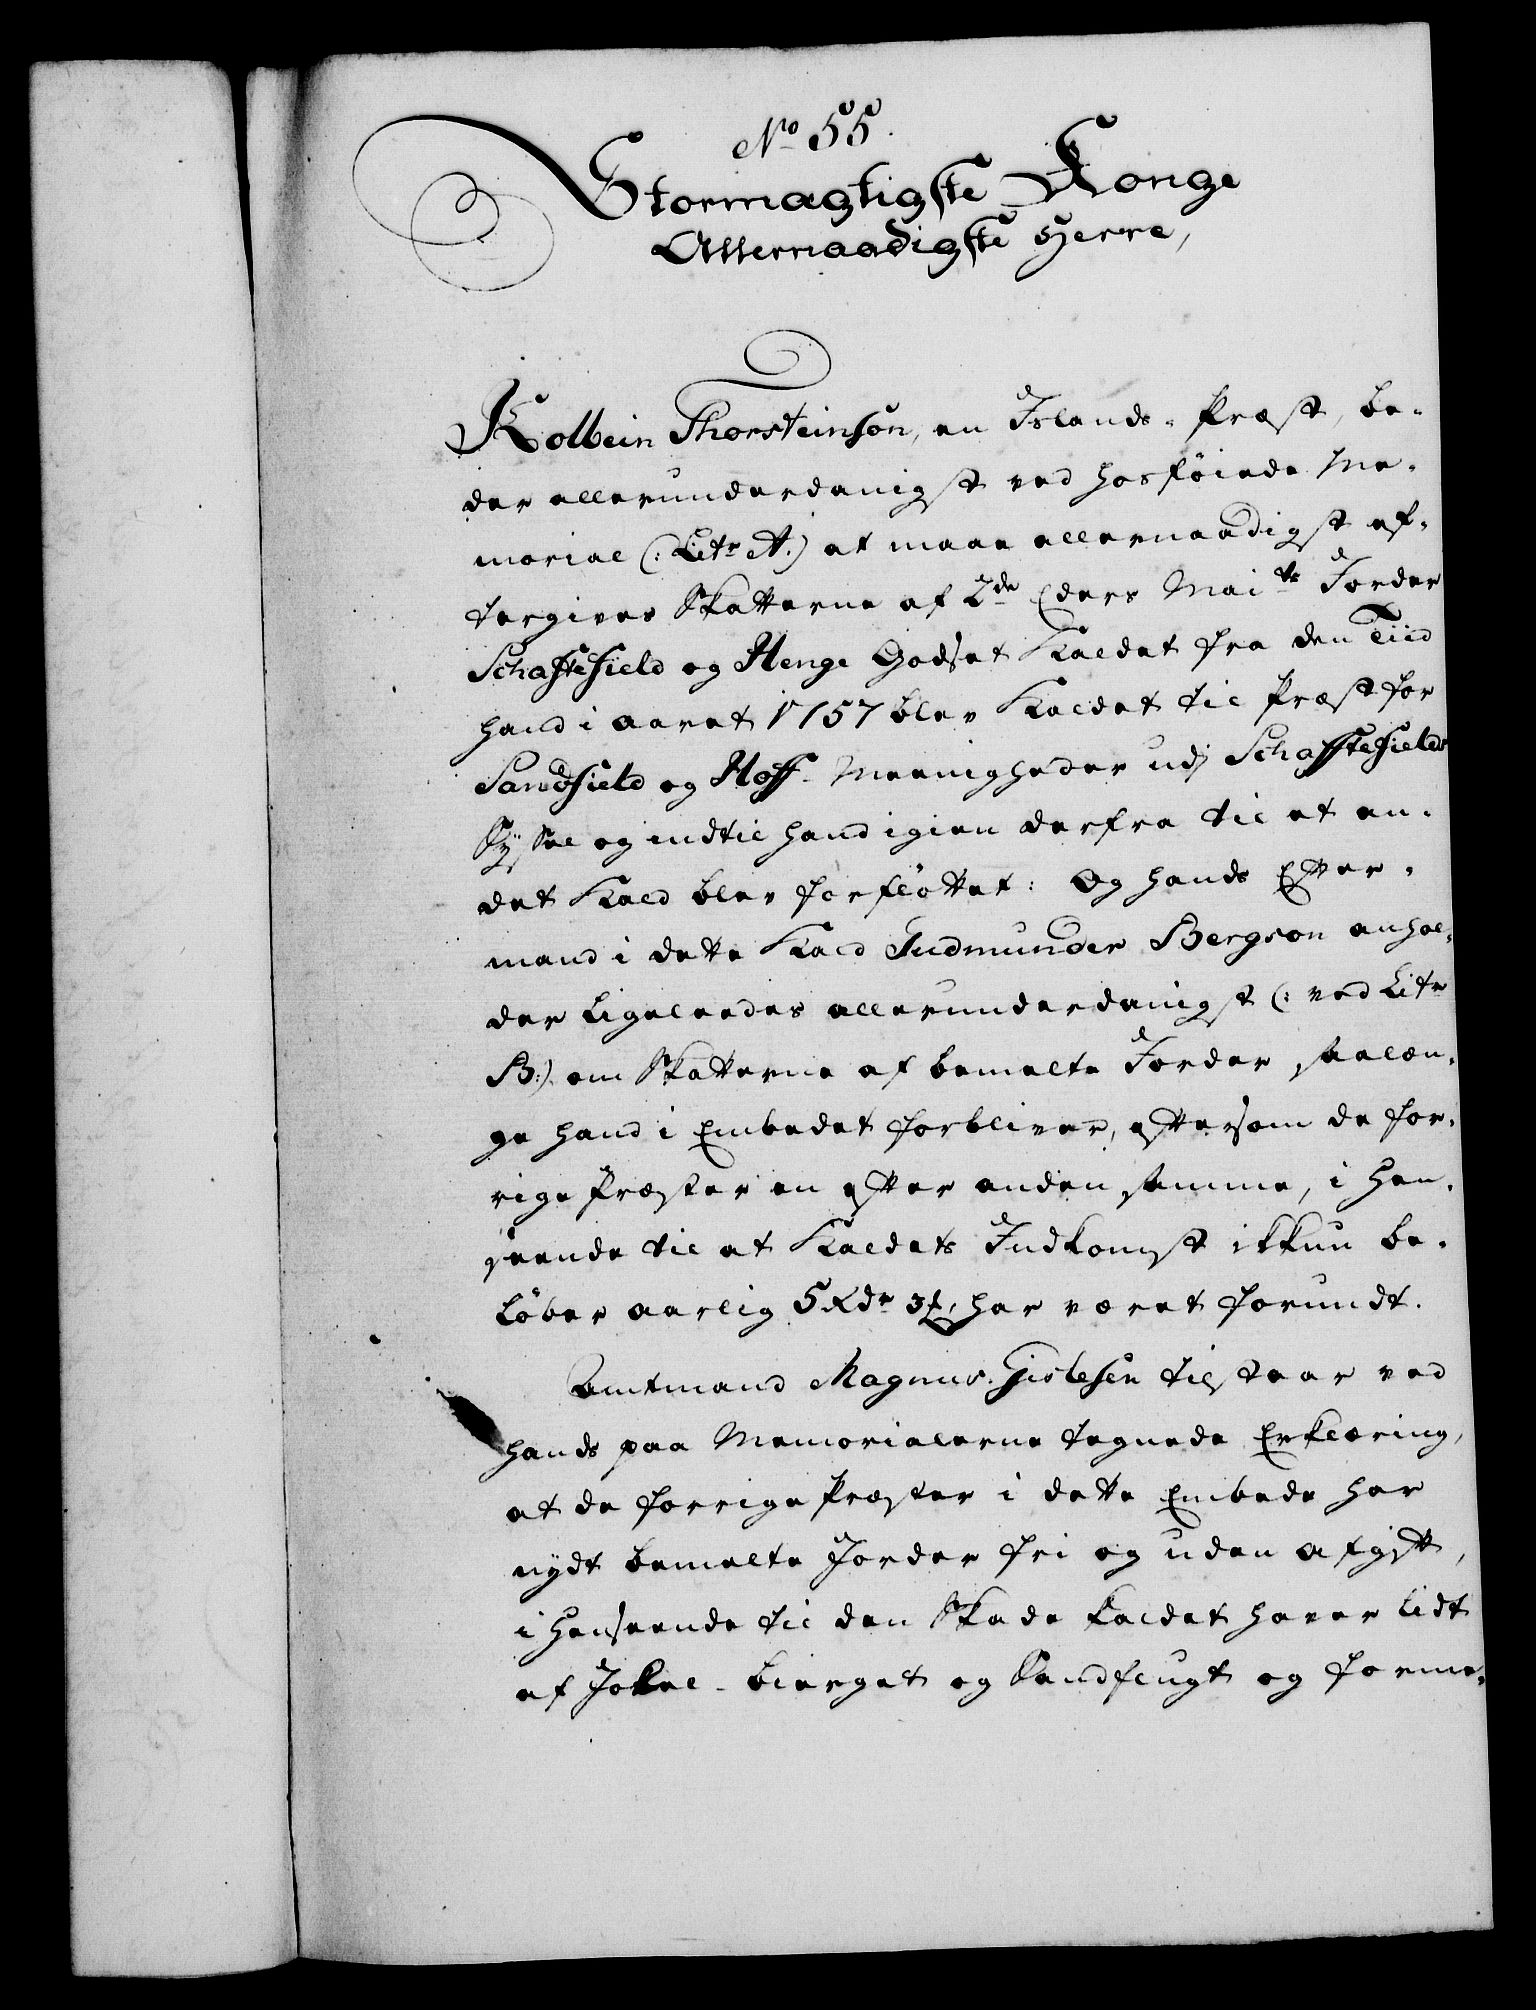 No 55.
Stormagtigste Konge
Allernaadigste Herre,
Kolbein Thorsteinson, en Islands- Præst, be-
der allerunderdanigst ved hosföiede Me-
morial (: Litr A.) at maae allernaadigst ef-
tergives Skatterne af 2de Eders Maits Jorder
Schaftefield og Henge Godset Kaldet fra den Tiid
hand i aaret 1757 blev Kaldet til Præst for
Sandfield og Hoff- Meenigheder udj Schafftefields
Syssel og indtil hand igien derfra til et an-
det Kald blev forflöttet: Og hands Efter-
mand i dette Kald Gudmunder Bergson anhol-
der Ligeleedes allerunderdanigst (: ved Litr
B:). om Skatterne af bemelte Jorder saalæn-
ge hand i Embedet forbliver, eftersom de for-
rige Præster en efter anden samme, i Hen-
seende til at Kaldets Indkomst ikkun be-
löber aarlig 5 Rdr 3 ß, har været forundt.
Amtmand Magnus Gislesen tilstaar ved
hands paa Memorialerne tegnede Erklæring,
at de forrige Præster i dette Embede har
nydt bemelte Jorder fri og uden afgift,
i Henseende til den Skade Kaldet haver Lidt
af Jokel- bierget og Sandflugt og forme-